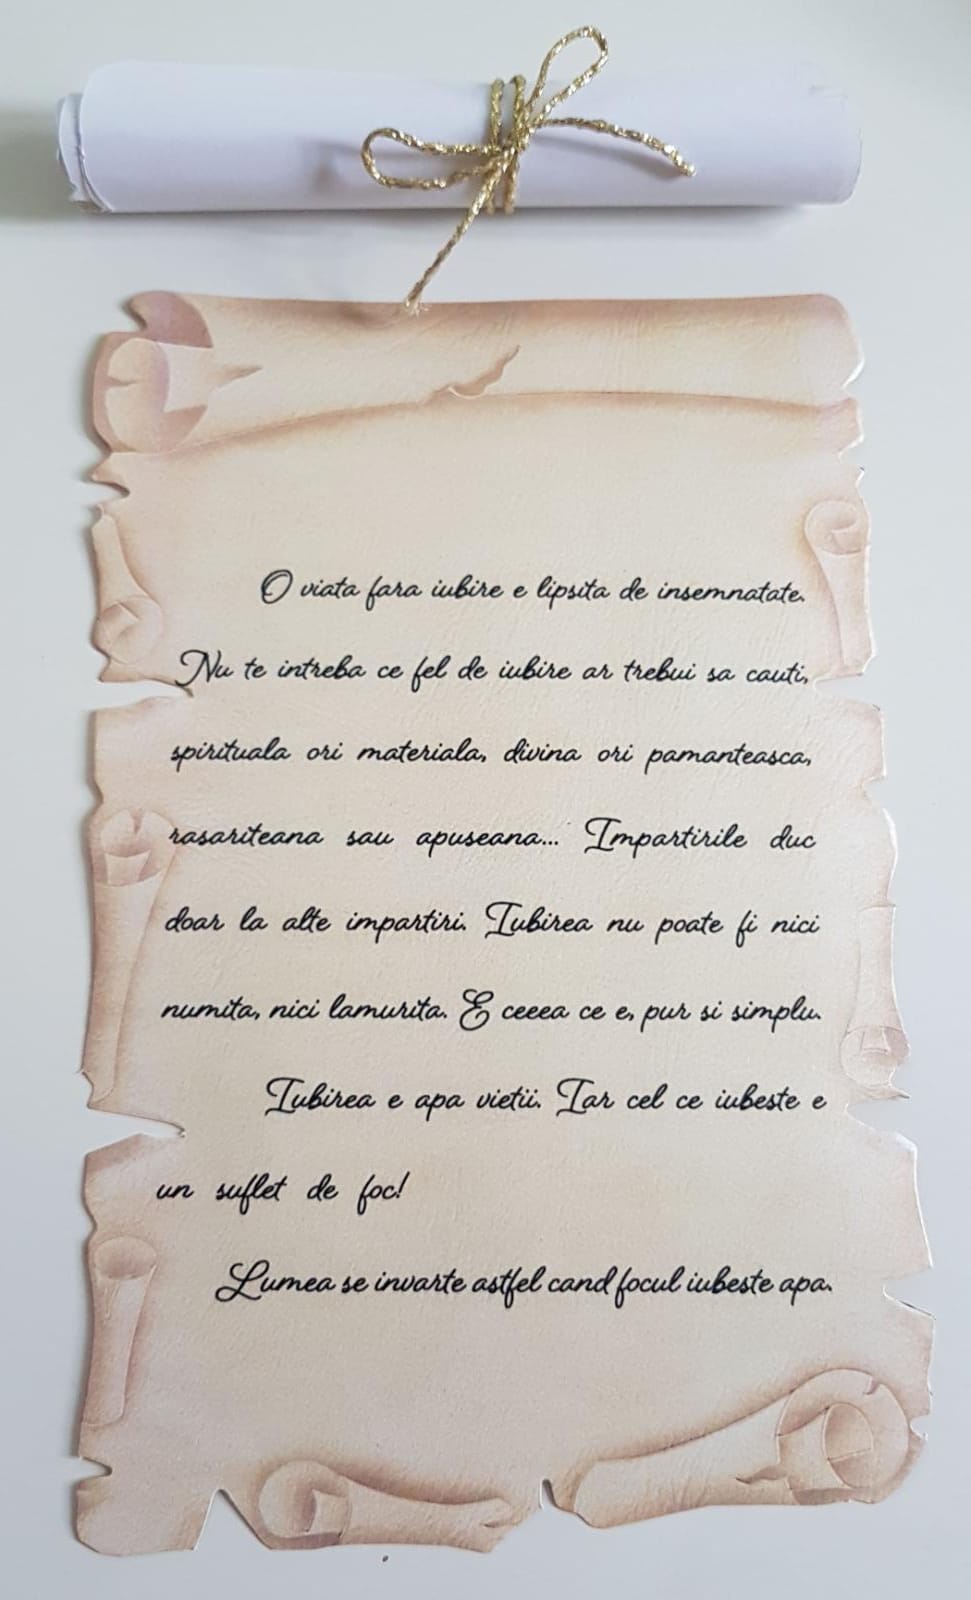 O viata fara iubire e lipsita de insemnatate.
Nu te intreba ce fel de iubire ar trebui sa cauti,
spirituala ori materiala, divina ori pamanteasca,
rasariteana sau apuseana... Impartirile duc
doar la alte impartiri. Iubirea nu poate fi nici
numita, nici lamurita. E ceeea ce e, pur si simplu.
Iubirea e apa vietii. Iar cel ce iubeste e
un suflet de foc!
Lumea se invarte astfel cand focul iubeste apa.